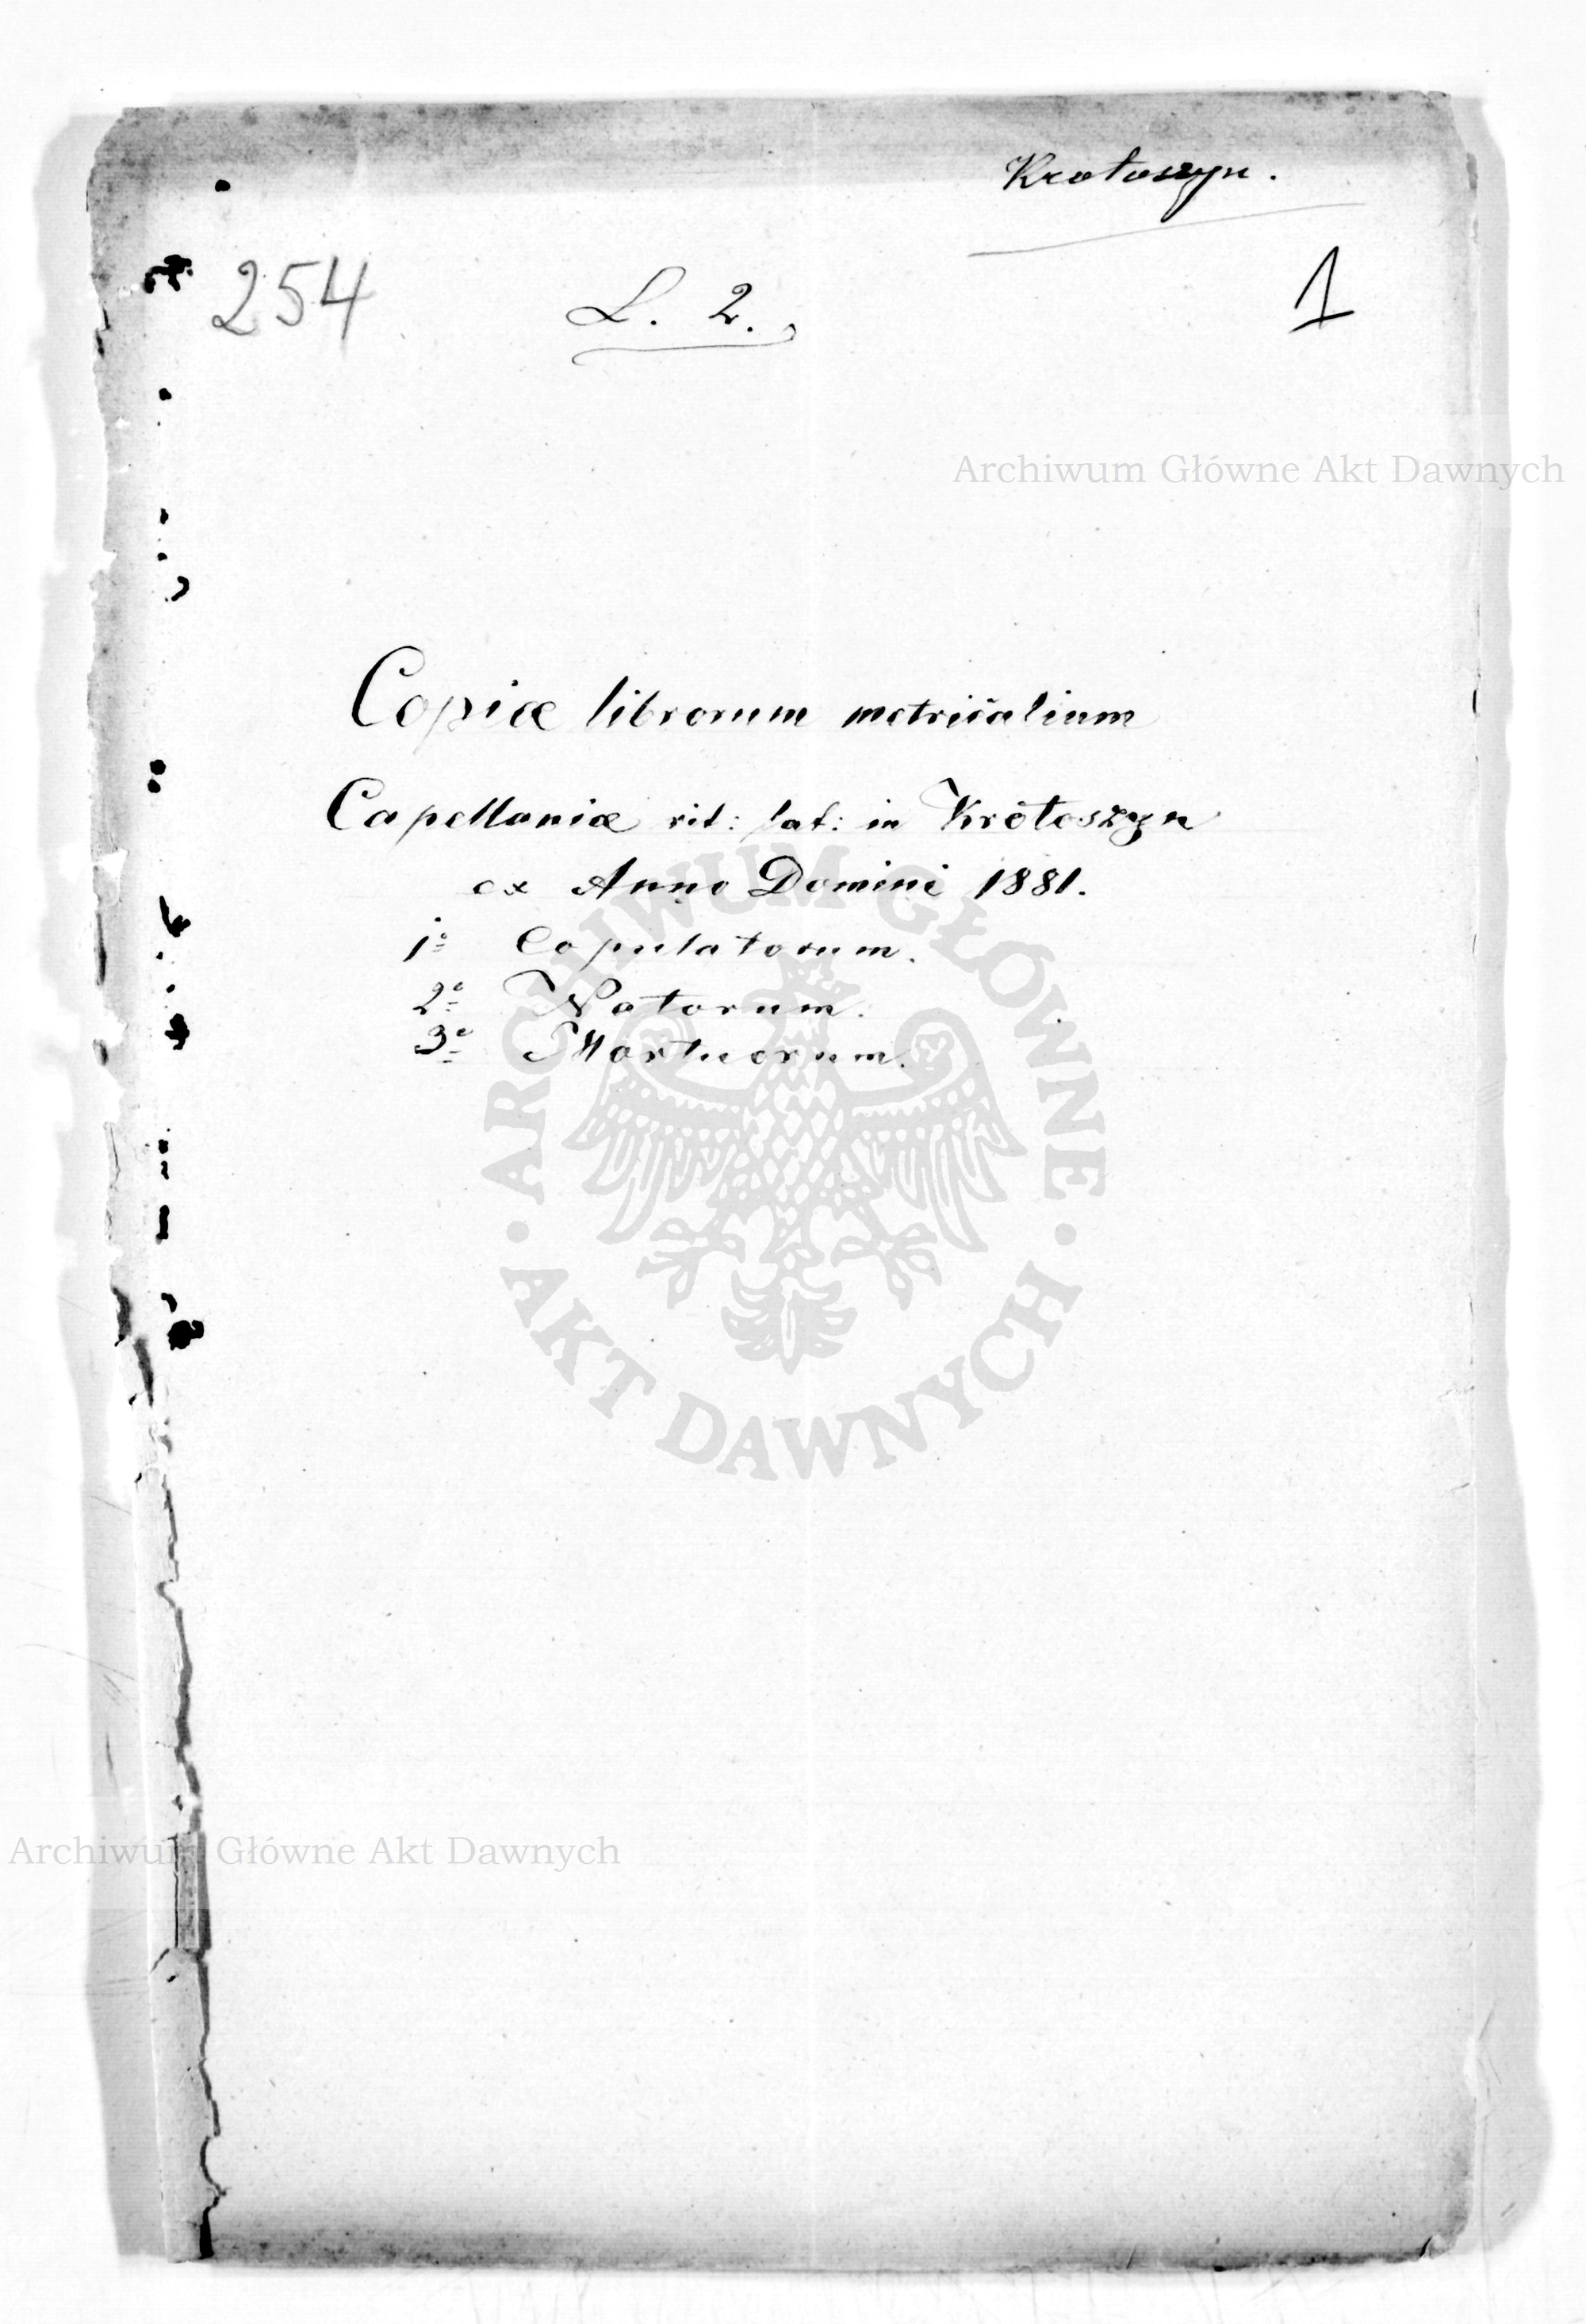 Krotoszyn.
254
L. 2.
1
Archiwum Główne Akt Dawnych
Copiæ librorum metricalium
Capellaniæ rit: lat: in Krotoszyn
ex Anno Domini 1881.
1º Copulatorum.
2º Natorum.
3º Mortuorum.
ARCHIWUM GŁÓWNE
AKT DAWNYCH
Archiwum Główne Akt Dawnych